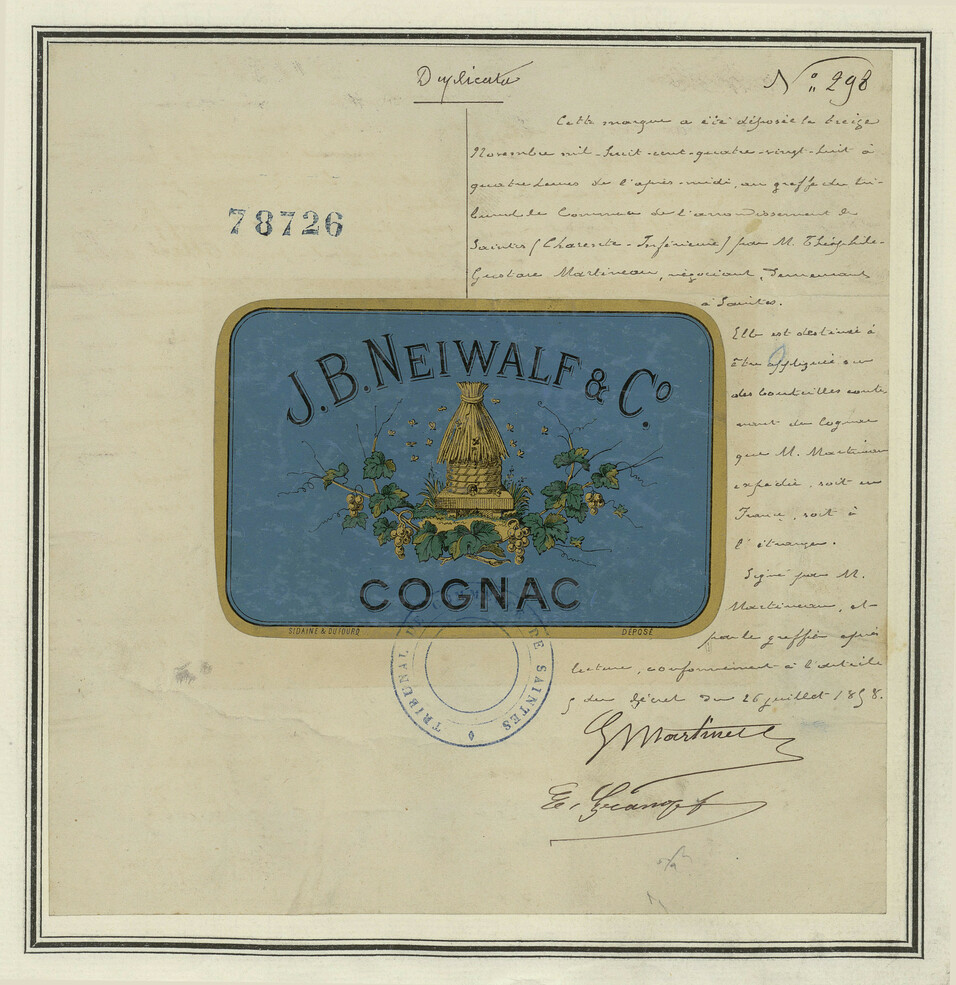 Duplicata
N° 298
78726
Cette marque a été déposée le treize
Novembre mil-huit-cent-quatre-vingt-huit à
quatre heures de l'après-midi, au greffe du tri-
bunal de Commerce de l'arrondissement de
Saintes (Charente-Inférieure) par M. Théophile-
Gustave Martineau, négociant, demeurant
à Saintes.
Elle est destinée à
être appliquée sur
des bouteilles conte-
nant du Cognac
que M. Martineau
expédie, soit en
France, soit à
l'étranger.
Signé par M.
Martineau, et
par le greffier après
lecture, conformément à l'article
5 du décret du 26 juillet 1858.
J.B. NEIWALF & Co.
COGNAC
SIDAINE & DUFOURQ
DÉPOSÉ
TRIBUNAL DE SAINTES
G Martineau
E.